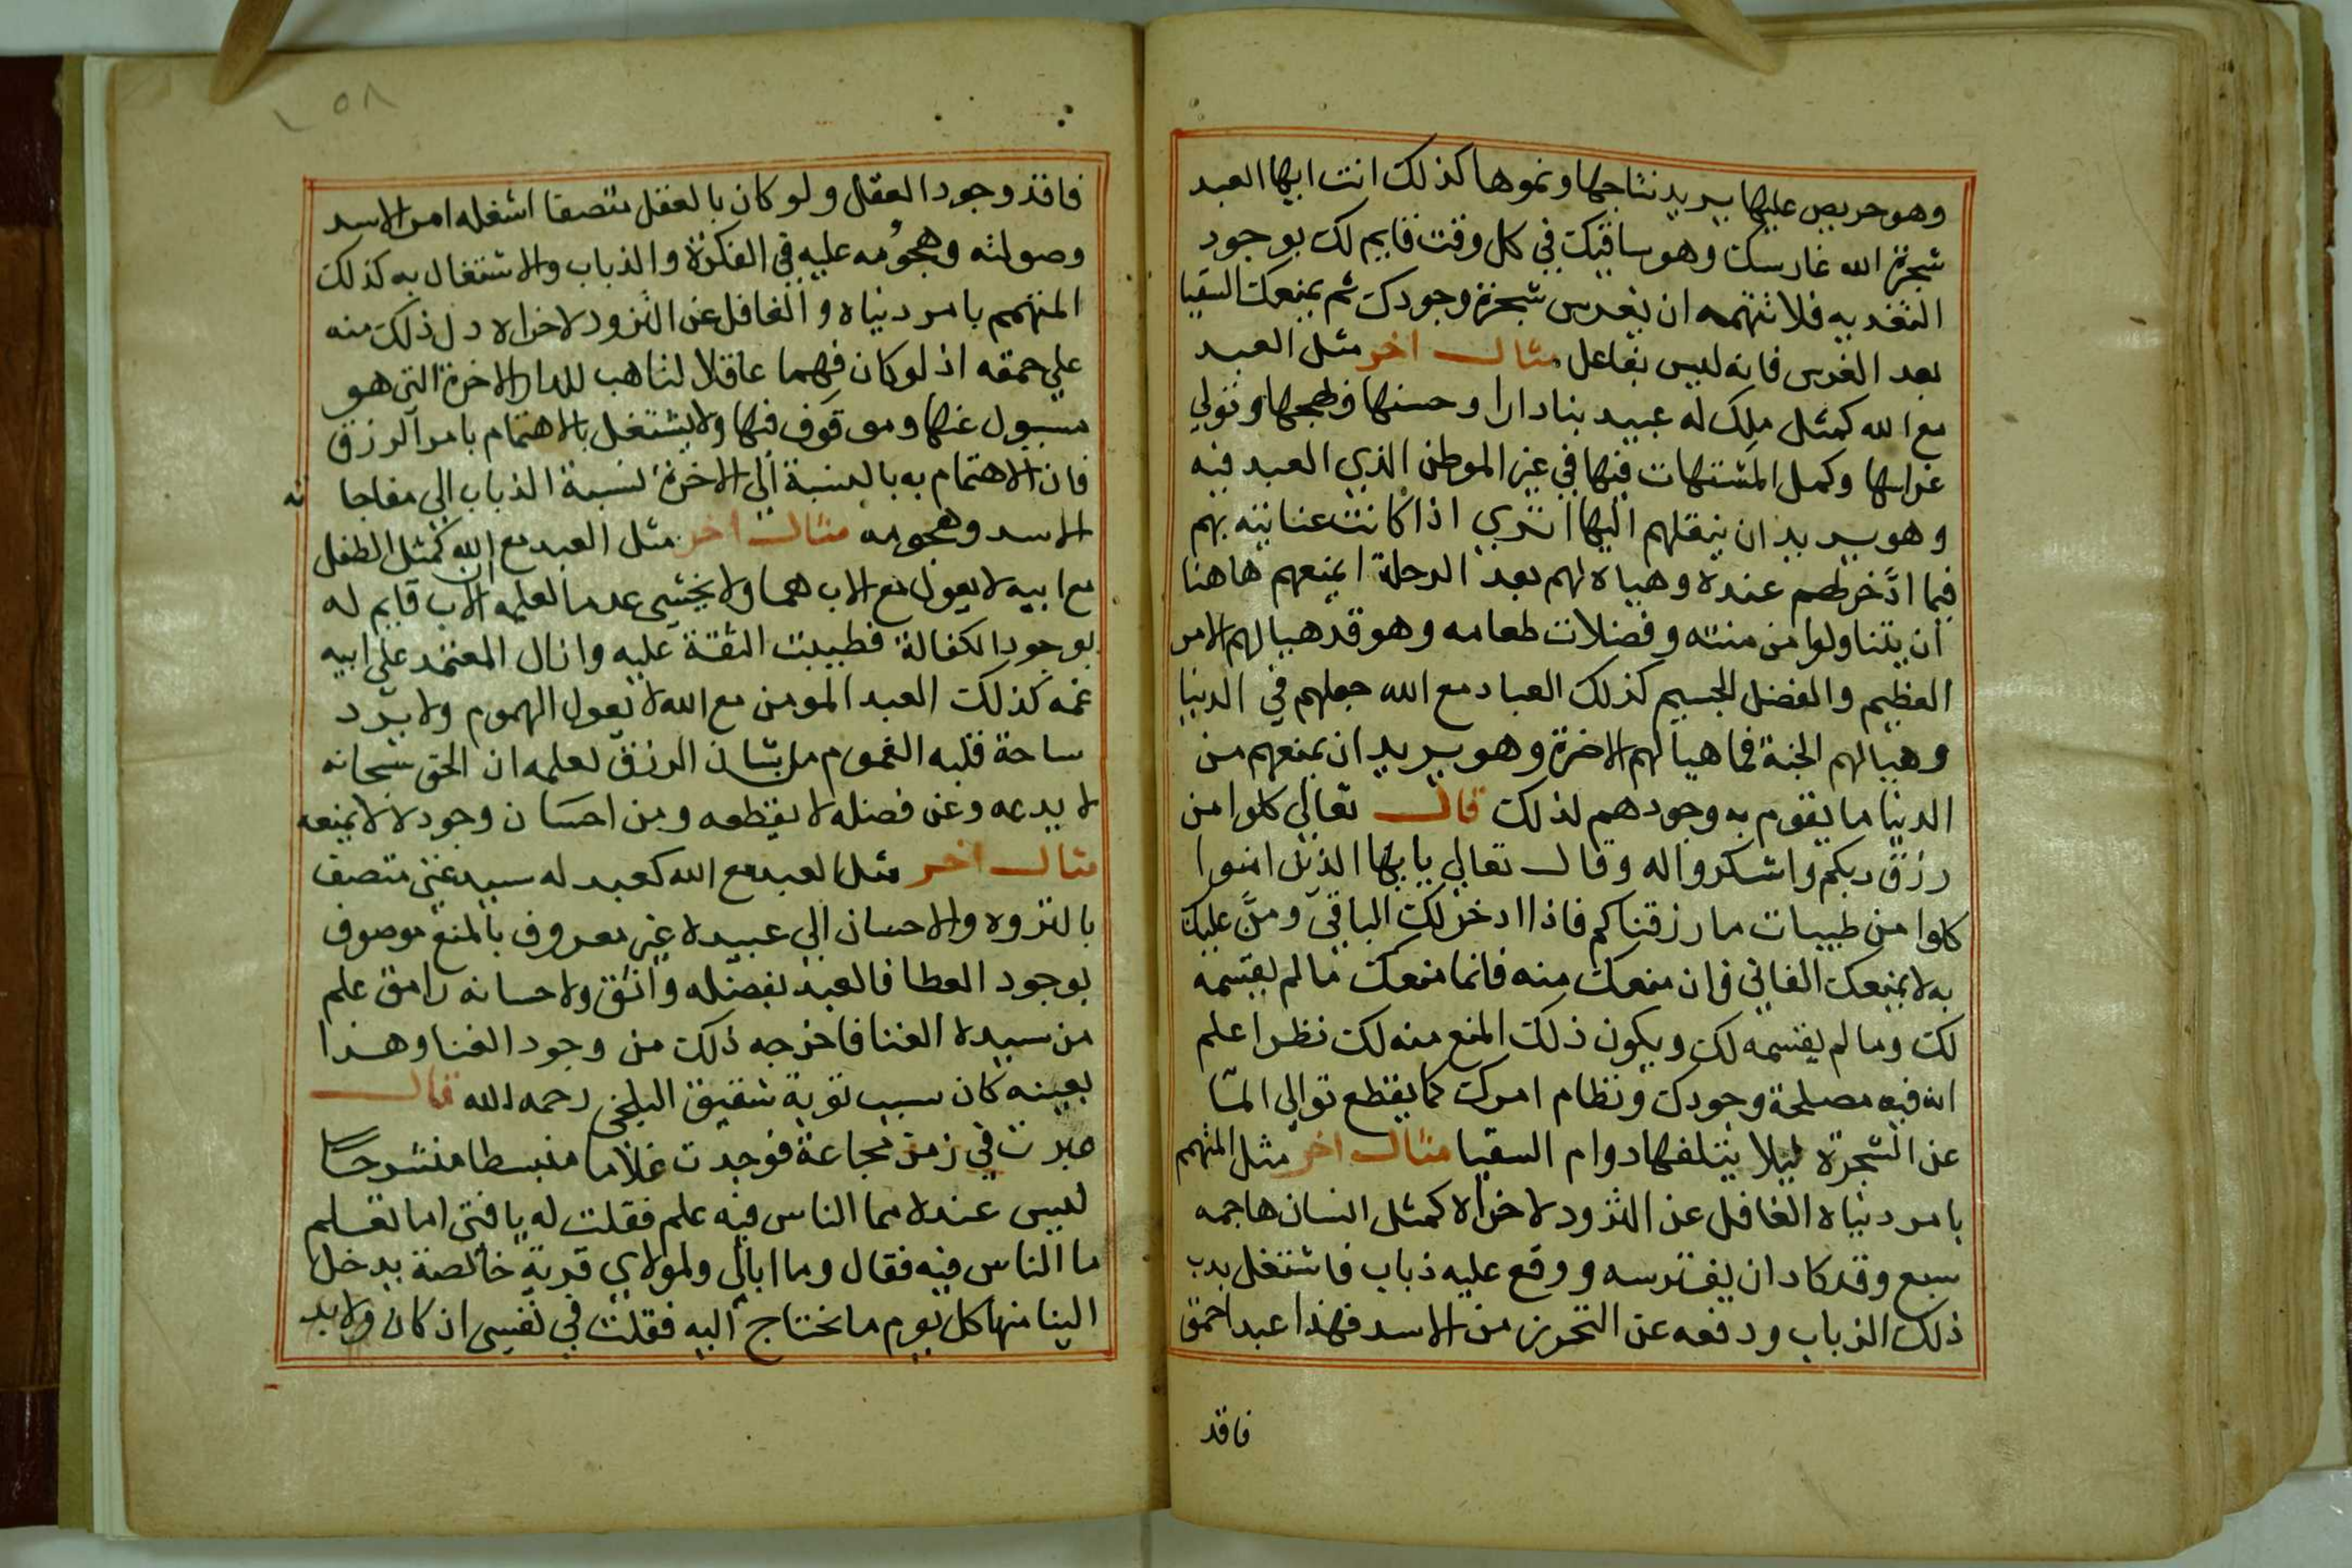 وهو حريص عليها يريد نتاجها ونموها كذلك انت ايها العبد
شجرة الله غارسك وهو ساقيك في كل وقت قايم لك بوجود
التغديه فلا تتهمه ان يغرس شجرة وجودك ثم يمنعك السقيا
بعد الغرس فانه ليس بفاعل مثال اخر مثل العبد
مع الله كمثل ملك له عبيد بنا دارا وحسنها وبهجها وتولي
غراسها وكمل المشتهات فيها في غير الموطن الذي العبد فيه
وهو يريد ان ينقلهم اليها اتري اذا كانت عنايته بهم
فيما ادّخر لهم عنده وهياه لهم بعد الرحلة ايمنعهم هاهنا
ان يتناولوا من منته وفضلات طعامه وهو قد هيا لهم الامر
العظيم والفضل الجسيم كذلك العباد مع الله جعلهم في الدنيا
وهيا لهم الجنة فما هيا لهم الاخرة وهو يريد ان يمنعهم من
الدنيا ما يقوم به وجودهم لذلك قال تعالي كلوا من
رزق ربكم واشكروا له وقال تعالي يايها الذين امنوا
كلوا من طيبات ما رزقناكم فاذا ادخر لك الباقي ومنَّ عليك
به لا يمنعك الفاني فان منعك منه فانما منعك ما لم يقسمه
لك وما لم يقسمه لك ويكون ذلك المنع منه لك نظرا علم
انه فيه مصلحة وجودك ونظام امرك كما يقطع توالي المآ
عن الشجرة ليلا يتلفها دوام السقيا مثال اخر مثل المتهم
بامر دنياه الغافل عن التزود لاخراه كمثل انسان هاجمه
سبع وقد كاد ان يفترسه ووقع عليه ذباب فاشتغل بدب
ذلك الذباب ودفعه عن التحرز من الاسد فهذا عبد احمق
فاقد
٥٨
فاقد وجود العقل ولو كان بالعقل متصفا اشغله امر الاسد
وصولته وهجومه عليه في الفكرة والذباب والاشتغال به كذلك
المتهمم بامر دنياه والغافل عن التزود لاخراه دل ذلك منه
علي حمقه اذ لو كان فهما عاقلا لتاهب للدار الاخرة التي هو
مسيول عنها وموقوف فيها ولا يشتغل بالاهتمام بامر الرزق
فان الاهتمام به بالنسبة الي الاخرة نسبة الذباب الي مفاجا ته
الاسد وهجومه مثال اخر مثل العبد مع الله كمثل الطفل
مع ابيه لا يعول مع الاب هما ولا يخشي عدما لعلمه ان الاب قايم له
بوجود الكفالة فطيبت الثقة عليه وازال المعتمد علي ابيه
غمه كذلك العبد المومن مع الله لا يعول الهموم ولا يرد
ساحة قلبه الغموم من شان الرزق لعلمه ان الحق سبحانه
لا يدعه وعن فضله لا يقطعه ومن احسان وجوده لا يمنعه
مثال اخر مثل العبد مع الله كعبد له سيد غني متصف
بالثروه والاحسان الي عبيده غير معروف بالمنع موصوف
بوجود العطا فالعبد بفضله واثق ولاحسانه رامق علم
من سيده الغنا فاخرجه ذلك من وجود العنا وهذا
بعينه كان سبب توبة شقيق البلخي رحمه الله قال
عبرت في زمن مجاعة فوجدت غلاما منبسطا منشرحا
ليس عنده مما الناس فيه علم فقلت له يا فتي اما تعلم
ما الناس فيه فقال وما ابالي ولمولاي قرية خالصة يدخل
الينا منها كل يوم ما نحتاج اليه فقلت في نفسي ان كان ولابد